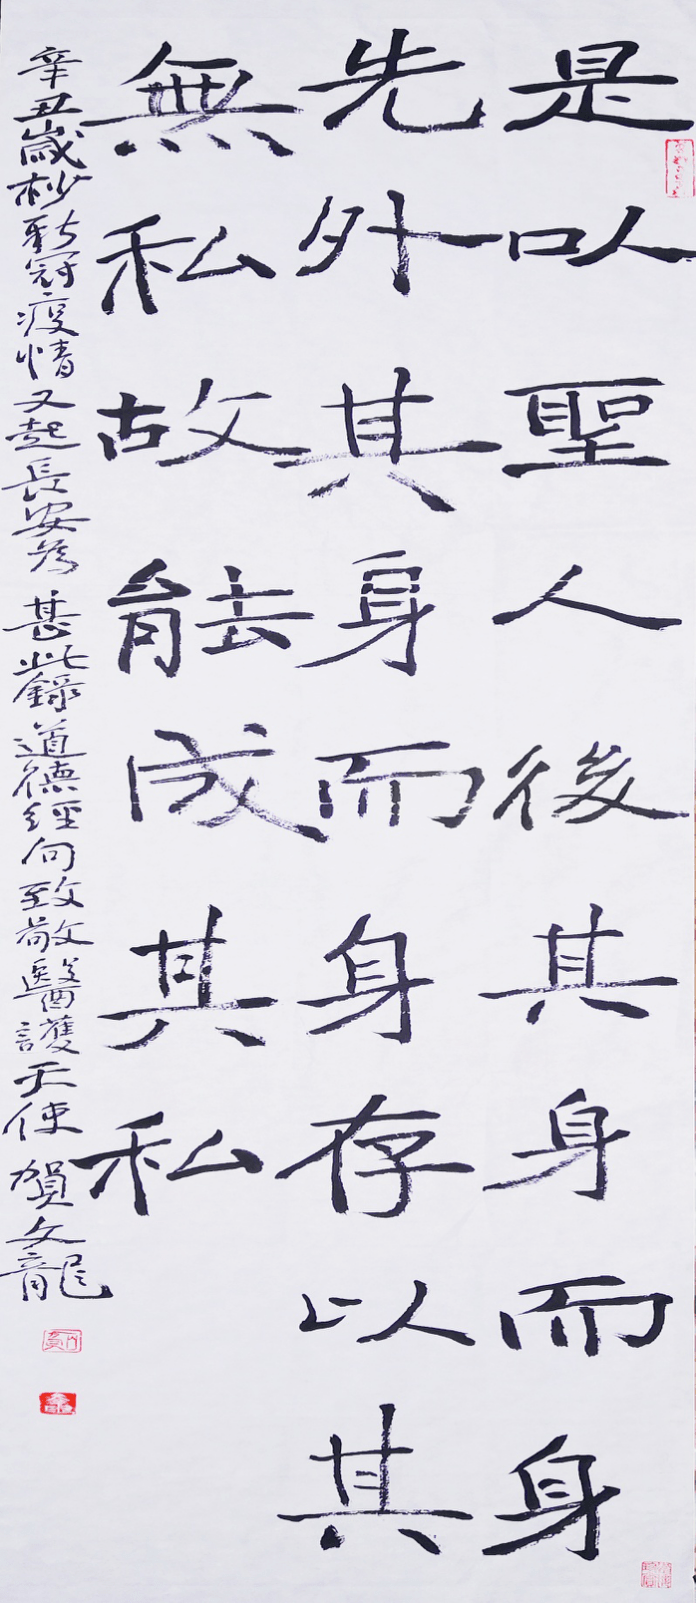 是以聖人後其身而身
先外其身而身存以其
無私故能成其私
辛丑歲杪新冠疫情又起長安為甚此錄道德經句致敬醫護天使賀文龍